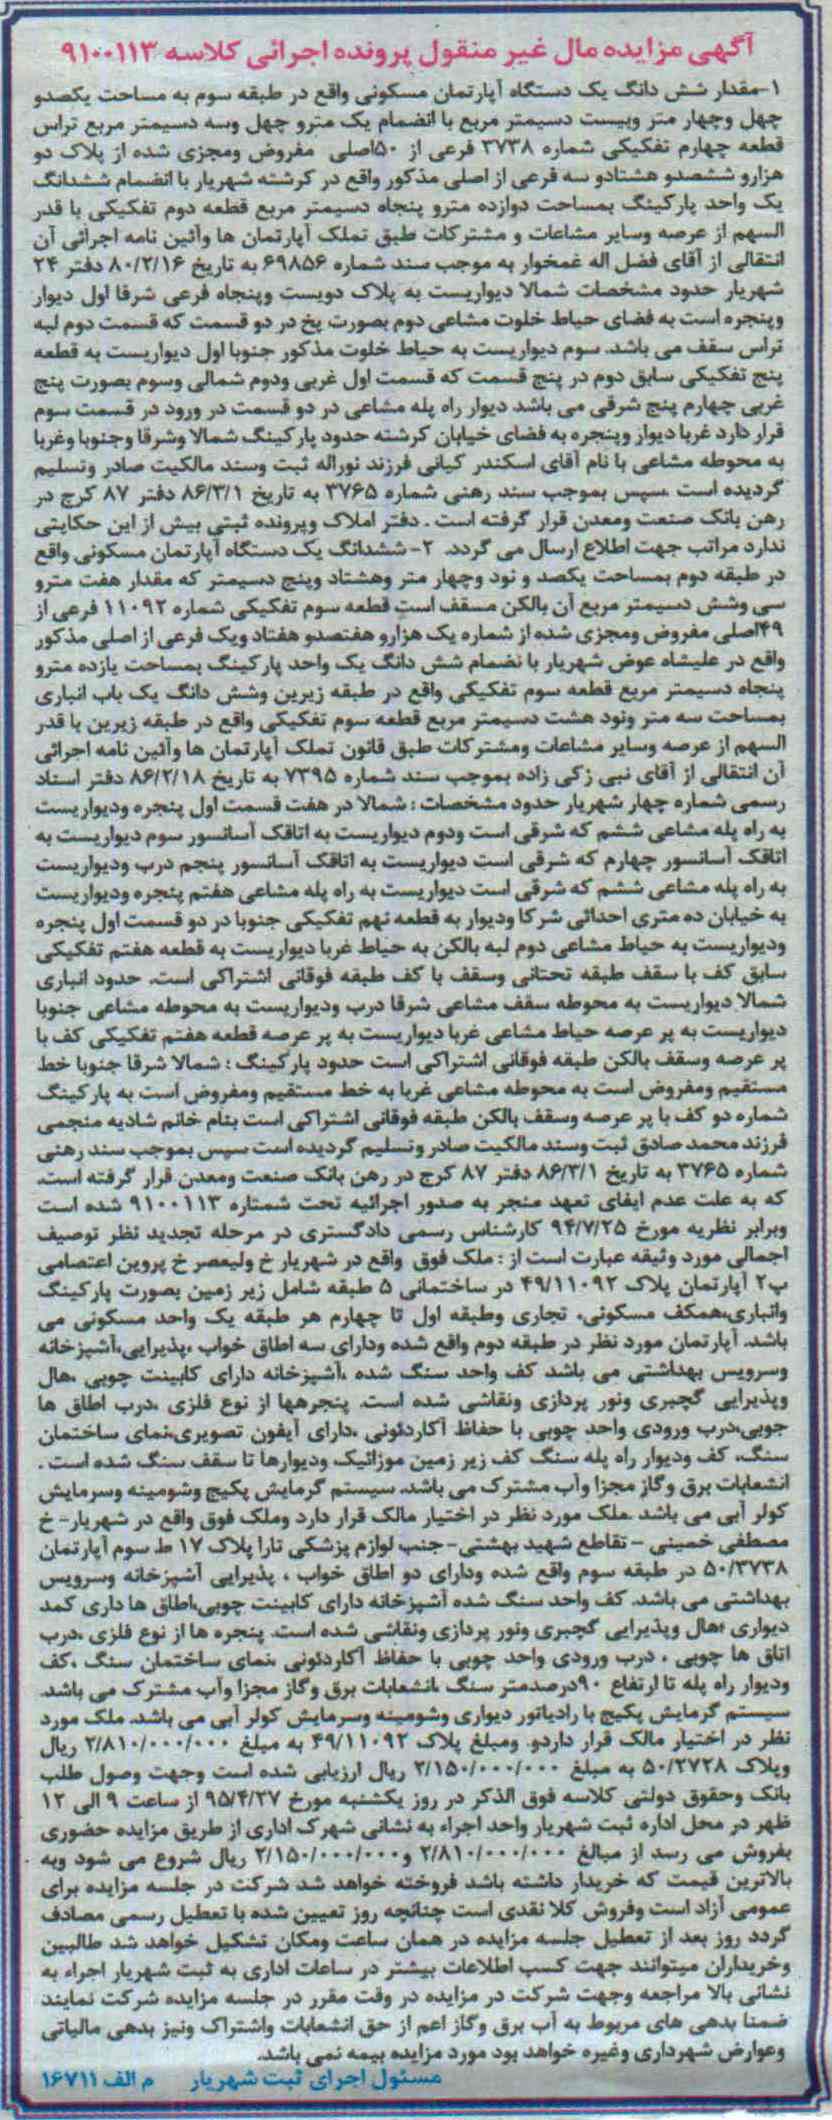 آگهی مزایده مال غیر منقول پرونده اجرائی کلاسه ۹۱۰۰۱۱۳
۱-مقدار شش دانگ یک دستگاه آپارتمان مسکونی واقع در طبقه سوم به مساحت یکصدو
چهل وچهار متر وبیست دسیمتر مربع با انضمام یک مترو چهل وسه دسیمتر مربع تراس
قطعه چهارم تفکیکی شماره ۳۷۳۸ فرعی از ۵۰اصلی مفروض ومجزی شده از پلاک دو
هزارو ششصدو هشتادو سه فرعی از اصلی مذکور واقع در کرشته شهریار با انضمام ششدانگ
یک واحد پارکینگ بمساحت دوازده مترو پنجاه دسیمتر مربع قطعه دوم تفکیکی با قدر
السهم از عرصه وسایر مشاعات و مشترکات طبق تملک آپارتمان ها وآئین نامه اجرائی آن
انتقالی از آقای فضل اله غمخوار به موجب سند شماره ۶۹۸۵۶ به تاریخ ۸۰/۲/۱۶ دفتر ۲۴
شهریار حدود مشخصات شمالا دیواریست به پلاک دویست وپنجاه فرعی شرقا اول دیوار
وپنجره است به فضای حیاط خلوت مشاعی دوم بصورت پخ در دو قسمت که قسمت دوم لبه
تراس سقف می باشد. سوم دیواریست به حیاط خلوت مذکور جنوبا اول دیواریست به قطعه
پنج تفکیکی سابق دوم در پنج قسمت که قسمت اول غربی ودوم شمالی وسوم بصورت پنج
غربی چهارم پنج شرقی می باشد دیوار راه پله مشاعی در دو قسمت در ورود در قسمت سوم
قرار دارد غربا دیوار وپنجره به فضای خیابان کرشته حدود پارکینگ شمالا وشرقا وجنوبا وغربا
به محوطه مشاعی با نام آقای اسکندر کیانی فرزند نوراله ثبت وسند مالکیت صادر وتسلیم
گردیده است .سپس بموجب سند رهنی شماره ۳۷۶۵ به تاریخ ۸۶/۳/۱ دفتر ۸۷ کرج در
رهن بانک صنعت ومعدن قرار گرفته است . دفتر املاک وپرونده ثبتی بیش از این حکایتی
ندارد مراتب جهت اطلاع ارسال می گردد. ۲- ششدانگ یک دستگاه آپارتمان مسکونی واقع
در طبقه دوم بمساحت یکصد و نود وچهار متر وهشتاد وپنج دسیمتر که مقدار هفت مترو
سی وشش دسیمتر مربع آن بالکن مسقف است قطعه سوم تفکیکی شماره ۱۱۰۹۲ فرعی از
۴۹اصلی مفروض ومجزی شده از شماره یک هزارو هفتصدو هفتاد ویک فرعی از اصلی مذکور
واقع در علیشاه عوض شهریار با نضمام شش دانگ یک واحد پارکینگ بمساحت یازده مترو
پنجاه دسیمتر مربع قطعه سوم تفکیکی واقع در طبقه زیرین وشش دانگ یک باب انباری
بمساحت سه متر ونود هشت دسیمتر مربع قطعه سوم تفکیکی واقع در طبقه زیرین با قدر
السهم از عرصه وسایر مشاعات ومشترکات طبق قانون تملک آپارتمان ها وآئین نامه اجرائی
آن انتقالی از آقای نبی زکی زاده بموجب سند شماره ۷۳۹۵ به تاریخ ۸۶/۲/۱۸ دفتر اسناد
رسمی شماره چهار شهریار حدود مشخصات : شمالا در هفت قسمت اول پنجره ودیواریست
به راه پله مشاعی ششم که شرقی است ودوم دیواریست به اتاقک آسانسور سوم دیواریست به
اتاقک آسانسور چهارم که شرقی است دیواریست به اتاقک آسانسور پنجم درب ودیواریست
به راه پله مشاعی ششم که شرقی است دیواریست به راه پله مشاعی هفتم پنجره ودیواریست
به خیابان ده متری احداثی شرکا ودیوار به قطعه نهم تفکیکی جنوبا در دو قسمت اول پنجره
ودیواریست به حیاط مشاعی دوم لبه بالکن به حیاط غربا دیواریست به قطعه هفتم تفکیکی
سابق کف با سقف طبقه تحتانی وسقف با کف طبقه فوقانی اشتراکی است. حدود انباری
شمالا دیواریست به محوطه سقف مشاعی شرقا درب ودیواریست به محوطه مشاعی جنوبا
دیواریست به پر عرصه حیاط مشاعی غربا دیواریست به پر عرصه قطعه هفتم تفکیکی کف با
پر عرصه وسقف بالکن طبقه فوقانی اشتراکی است حدود پارکینگ : شمالا شرقا جنوبا خط
مستقیم ومفروض است به محوطه مشاعی غربا به خط مستقیم ومفروض است به پارکینگ
شماره دو کف با پر عرصه وسقف بالکن طبقه فوقانی اشتراکی است بنام خانم شادیه منجمی
فرزند محمد صادق ثبت وسند مالکیت صادر وتسلیم گردیده است سپس بموجب سند رهنی
شماره ۳۷۶۵ به تاریخ ۸۶/۳/۱ دفتر ۸۷ کرج در رهن بانک صنعت ومعدن قرار گرفته است.
که به علت عدم ایفای تعهد منجر به صدور اجرائیه تحت شماره ۹۱۰۰۱۱۳ شده است
وبرابر نظریه مورخ ۹۴/۷/۲۵ کارشناس رسمی دادگستری در مرحله تجدید نظر توصیف
اجمالی مورد وثیقه عبارت است از : ملک فوق واقع در شهریار خ ولیعصر خ پروین اعتصامی
پ۲ آپارتمان پلاک ۴۹/۱۱۰۹۲ در ساختمانی ۵ طبقه شامل زیر زمین بصورت پارکینگ
وانباری،همکف مسکونی، تجاری وطبقه اول تا چهارم هر طبقه یک واحد مسکونی می
باشد. آپارتمان مورد نظر در طبقه دوم واقع شده ودارای سه اطاق خواب ،پذیرایی،آشپزخانه
وسرویس بهداشتی می باشد کف واحد سنگ شده ،آشپزخانه دارای کابینت چوبی ،هال
وپذیرایی گچبری ونور پردازی ونقاشی شده است. پنجرهها از نوع فلزی ،درب اطاق ها
چوبی،درب ورودی واحد چوبی با حفاظ آکاردئونی ،دارای آیفون تصویری،نمای ساختمان
سنگ، کف ودیوار راه پله سنگ کف زیر زمین موزائیک ودیوارها تا سقف سنگ شده است .
انشعابات برق وگاز مجزا وآب مشترک می باشد. سیستم گرمایش پکیج وشومینه وسرمایش
کولر آبی می باشد .ملک مورد نظر در اختیار مالک قرار دارد وملک فوق واقع در شهریار- خ
مصطفی خمینی - تقاطع شهید بهشتی- جنب لوازم پزشکی تارا پلاک ۱۷ ط سوم آپارتمان
۵۰/۳۷۳۸ در طبقه سوم واقع شده ودارای دو اطاق خواب ، پذیرایی آشپزخانه وسرویس
بهداشتی می باشد. کف واحد سنگ شده آشپزخانه دارای کابینت چوبی،اطاق ها داری کمد
دیواری ،هال وپذیرایی گچبری ونور پردازی ونقاشی شده است. پنجره ها از نوع فلزی ،درب
اتاق ها چوبی ، درب ورودی واحد چوبی با حفاظ آکاردئونی ،نمای ساختمان سنگ ،کف
ودیوار راه پله تا ارتفاع ۹۰درصدمتر سنگ ،انشعابات برق وگاز مجزا وآب مشترک می باشد.
سیستم گرمایش پکیج با رادیاتور دیواری وشومینه وسرمایش کولر آبی می باشد. ملک مورد
نظر در اختیار مالک قرار داردو. ومبلغ پلاک ۴۹/۱۱۰۹۲ به مبلغ ۲/۸۱۰/۰۰۰/۰۰۰ ریال
وپلاک ۵۰/۲۷۲۸ به مبلغ ۲/۱۵۰/۰۰۰/۰۰۰ ریال ارزیابی شده است وجهت وصول طلب
بانک وحقوق دولتی کلاسه فوق الذکر در روز یکشنبه مورخ ۹۵/۴/۲۷ از ساعت ۹ الی ۱۲
ظهر در محل اداره ثبت شهریار واحد اجراء به نشانی شهرک اداری از طریق مزایده حضوری
بفروش می رسد از مبالغ ۲/۸۱۰/۰۰۰/۰۰۰ و۲/۱۵۰/۰۰۰/۰۰۰ ریال شروع می شود وبه
بالاترین قیمت که خریدار داشته باشد فروخته خواهد شد شرکت در جلسه مزایده برای
عمومی آزاد است وفروش کلا نقدی است چنانچه روز تعیین شده با تعطیل رسمی مصادف
گردد روز بعد از تعطیل جلسه مزایده در همان ساعت ومکان تشکیل خواهد شد طالبین
وخریداران میتوانند جهت کسب اطلاعات بیشتر در ساعات اداری به ثبت شهریار اجراء به
نشانی بالا مراجعه وجهت شرکت در مزایده در وقت مقرر در جلسه مزایده شرکت نمایند
ضمنا بدهی های مربوط به آب برق وگاز اعم از حق انشعابات واشتراک ونیز بدهی مالیاتی
وعوارض شهرداری وغیره خواهد بود مورد مزایده بیمه نمی باشد.
مسئول اجرای ثبت شهریار م الف ۱۶۷۱۱